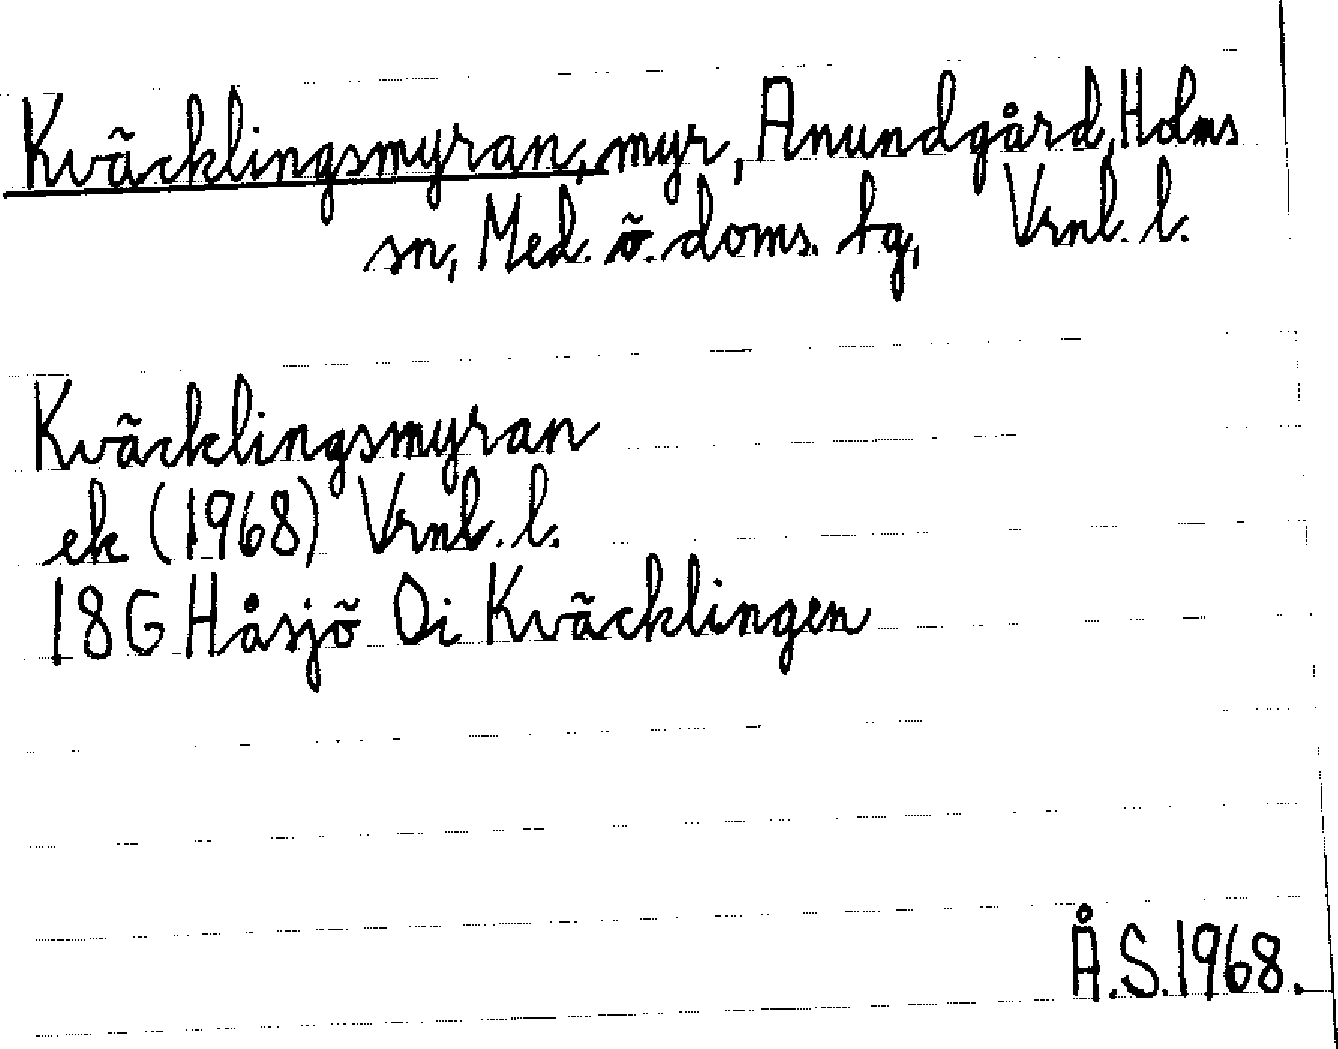 Kväcklingsmyran, myr, Anundgård, Holms
sn, Med. ö. doms. tg, Vrnl. l.
Kväcklingsmyran
ek (1968) Vrnl. l.
18G Håsjö Di Kväcklingen
Å.S.1968.